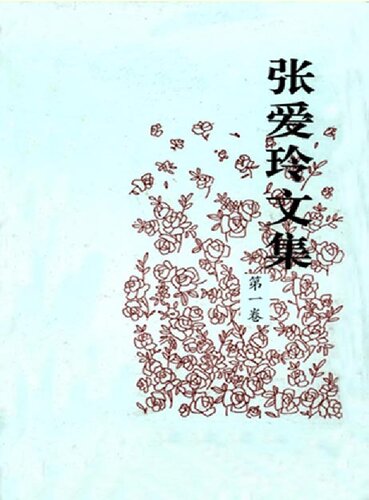 张爱玲文集
第一卷